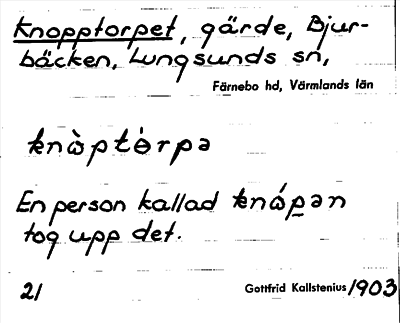 Knopptorpet, gärde, Bjur-
bäcken, Lungsunds sn,
Färnebo hd, Värmlands län
knὼptὼrpə
En person kallad knώpən
tog upp det.
21 Gottfrid Kallstenius 1903